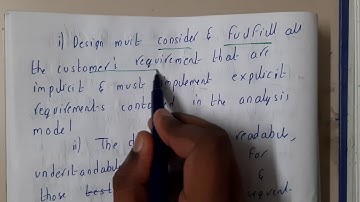 i) Design must consider & fulfill all
the customer's requirement that are
implicit & must implement explicit
requirements in the analysis
model
ii) The readable,
understandable for
those &